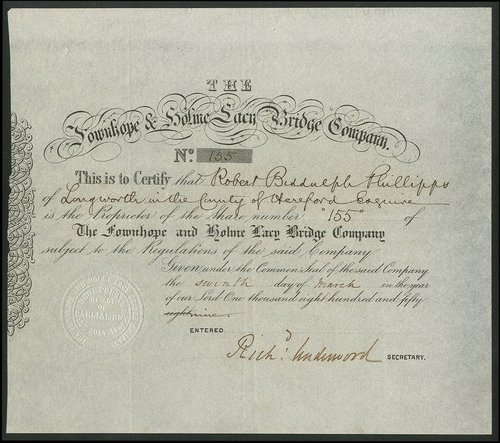 THE
Fownhope & Holme Lacy Bridge Company.
No. 155
This is to Certify that Robert Biddulph Phillipps
of Longworth in the County of Hereford esquire
is the Proprietor of the Share number "155" of
The Fownhope and Holme Lacy Bridge Company
subject to the Regulations of the said Company
Given under the Common Seal of the said Company
the seventh day of March in the year
of our Lord One thousand eight hundred and fifty
eight nine.
ENTERED
Richd. Underwood SECRETARY.
PARLIAMENT